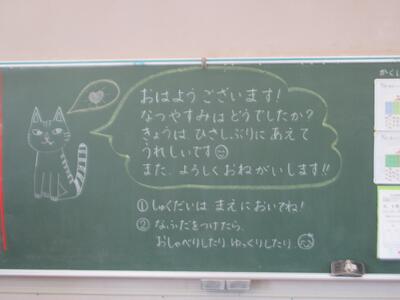 おはようございます!
なつやすみはどうでしたか?
きょうは、ひさしぶりにあえて
うれしいです
また、よろしくおねがいします!!
①しゅくだいは まえにおいてね!
②なふだをつけたら、
おしゃべりしたり、ゆっくりしたり、